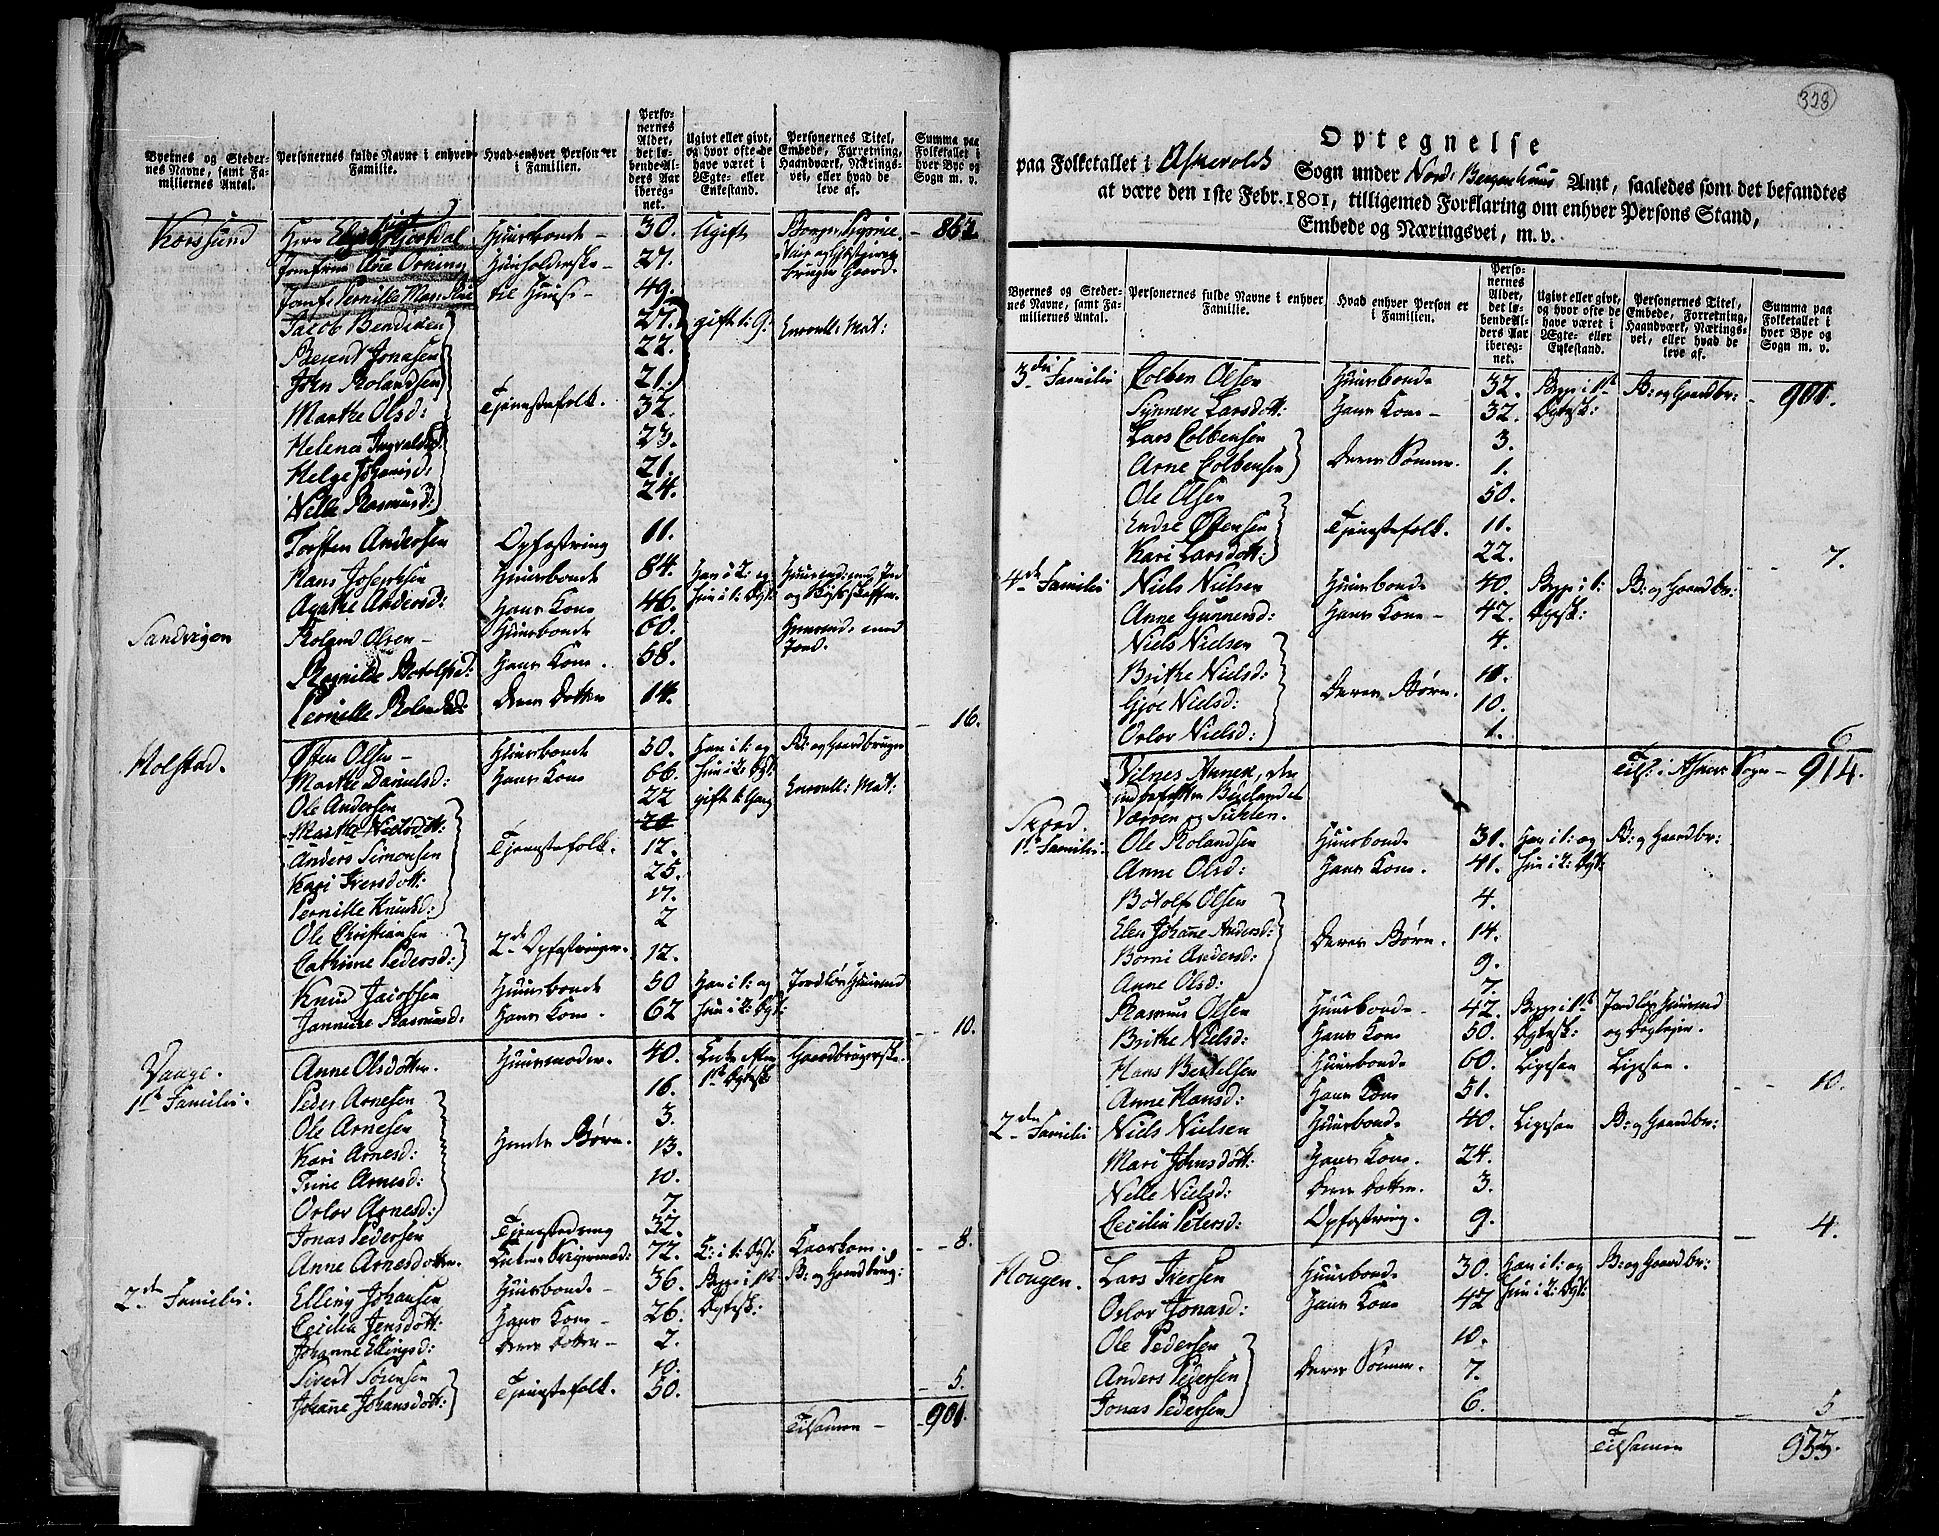 Byernes og Steder-
nes Navne, samt Fa-
miliernes Antal.
Personernes fulde Navne i enhver
Familie.
Hvad enhver Person er
i Familien.
Perso-
nernes
Alder,
det lø-
bende Al-
ders Aar
iberegnet.
Ugivt eller givt,
og hvor ofte de
have været i
Ægte- eller
Enkestand.
Personernes Titel,
Embede, Forretning,
Haandværk, Nærings-
vei, eller hvad de
leve af.
Summa paa
Folketallet i
hver Bye og
Sogn m. v.
Korssund Herr Huusbonde - 30. Ugift - 862.
Jomfrue Ane Huusholderske - 27.
Jomf: Pernille til Huuse - 49.
Jacob Bendixen 27. gift 1: G: Enroull: Mat:
Berent Jonasen 22.
John Rolandsen 21.
Marthe Olsd: Tjenestefolk. 32.
Helena Ingvaldsd: 23.
Helge Johanisd: 21.
Nelle Rasmusd: 24.
Torsten Andersen Opfostring 11.
Hans Josephsen Huusbonde 84. Han i 2: og
Agathe Andersd: Hans Kone 46. hun i 1: Ægt:
Sandvigen Roland Olsen - Huusbonde 60. Huusmd: med Jord.
Ragnilde Botolfsd: Hans Kone. 58.
Pernille Rolandsd: Deres Dotter 14. 16.
Molstad. Østen Olsen - Huusbonde 50. Han i 1: og B: og Gaardbruger
Marthe Danielsd: Hans Kone 66. hun i 2: Ægt:
Ole Andersen 22 gift 1: Gang Enroull: Mat:
Marthe Nielsdott: 20
Anders Simonsen Tjenestefolk. 12.
Kari Iversdott: 25.
Pernille Knudsd: 17.
Ole Christiansen 2
Cathrine Pedersd: 2de Opfostringer. 12.
Knud Jacobsen Huusbonde 50 Han i 1: og Jordløs Huusmd
Jannicke Rasmusd: Hans Kone. 62 hun i 2: Ægt: 10.
Vaage.
1ste Familie. Anne Olsdotter. Huusmoder. 40. Enke efter 1ste Ægtesk: Gaardbrugerske.
Peder Arnesen 16.
Ole Arnesen 3.
Kari Arnesd: Hendes Børn. 13.
Trine Arnesd: 10.
Orlov Arnesd: 7.
Jonas Pedersen Tjenestedreng 32.
Anne Arnesdotter. 72. E: i 1: Ægt: Kaarkone. 8.
2den Familie. Elling Johansen Huusbonde - 36. Begge i 1ste B: og Gaardbrug:
Cecilia Jensdott: Hans Kone - 26. Ægtesk:
Johanne Ellingsd: Deres Dotter - 2.
Sivert Sørensen 10.
Johanne Johansdott: Tjenestefolk. 50. 5.
Tilsamen - 901.
328
Optegnelse
paa Folketallet i Askevolds Sogn under Nord: Bergenhuus Amt, saaledes som det befandtes
at være den 1ste Febr. 1801, tilligemed Forklaring om enhver Persons Stand,
Embede og Næringsvei, m. v.
Byernes og Steder-
nes Navne, samt Fa-
miliernes Antal.
Personernes fulde Navne i enhver
Familie.
Hvad enhver Person er
i Familien.
Perso-
nernes
Alder,
det lø-
bende Al-
ders Aar
iberegnet.
Ugivt eller givt,
og hvor ofte de
have været i
Ægte- eller
Enkestand.
Personernes Titel,
Embede, Forretning,
Haandværk, Nærings-
vei, eller hvad de
leve af.
Summa paa
Folketallet i
hver Bye og
Sogn m. v.
3die Familie Colben Olsen Huusbonde 32. Begge i 1ste B: og Gaardbr: 901.
Synneve Larsdott: Hans Kone - 32. Ægtesk:
Lars Colbensen 3.
Arne Colbensen Deres Sønner. 1.
Ole Olsen 50.
Endre Østensen Tjenestefolk. 11.
Kari Larsdott: 22. 7.
4de Familie Niels Nielsen Huusbonde 40. Begge i 1: B: og Gaardbr:
Anne Gunnersd: Hans Kone - 42. Ægtesk:
Niels Nielsen 4.
Brithe Nielsd: 11.
Gjøe Nielsd: Deres Børn. 10.
Orlov Nielsd: 1. 6
Tils: i Askev: Sogn - 914.
Vilnes Annex, den
indbefatter Bulandet
Værøen og Sulen.
Skord.
1ste Familie. Ole Rolandsen Huusbonde 31. Han i 1: og B: og Gaardbr:
Anne Olsd: Hans Kone. 41. hun i 2: Ægt:
Botolf Olsen 4.
Elen Johanne Andersd: 14.
Børni Andersd: Deres Børn. 9.
Anne Olsd: 7.
Rasmus Olsen Huusbonde - 42. Begge i 1ste Jordløs Huusmd
Brithe Nielsd: Hans Kone 50. Ægtesk:
Hans Bertelsen Huusbonde 60. Ligesaa Ligesaa.
Anne Hansd: Hans Kone 51. 10.
2den Familie Niels Nielsen Huusbonde 40. Ligesaa B: og Gaardbr:
Mari Johnsdott: Hans Kone. 24.
Nelle Nielsd: Deres Dotter. 3.
Cecilia Petersd: Opfostring. 9. 4.
Hougen. Lars Iversen Huusbonde 30. Han i 1: og B: og Gaardbr:
Orlov Jonasd: Hans Kone 42 hun i 2: Ægt:
Ole Pedersen 10.
Anders Pedersen Deres Sønner. 7.
Jonas Pedersen 6. 5
Tilsamen 933.